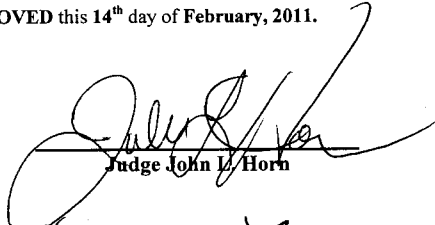 OVED this 14th day of February, 2011.
Judge John L. Horn